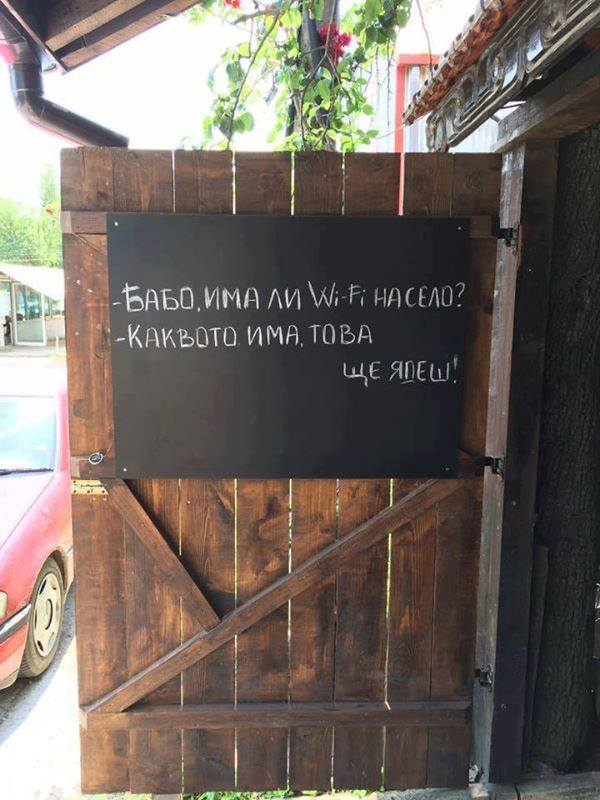 -БАБО, ИМА ЛИ Wi-Fi НА СЕЛО?
-КАКВОТО ИМА, ТОВА
ЩЕ ЯДЕШ!